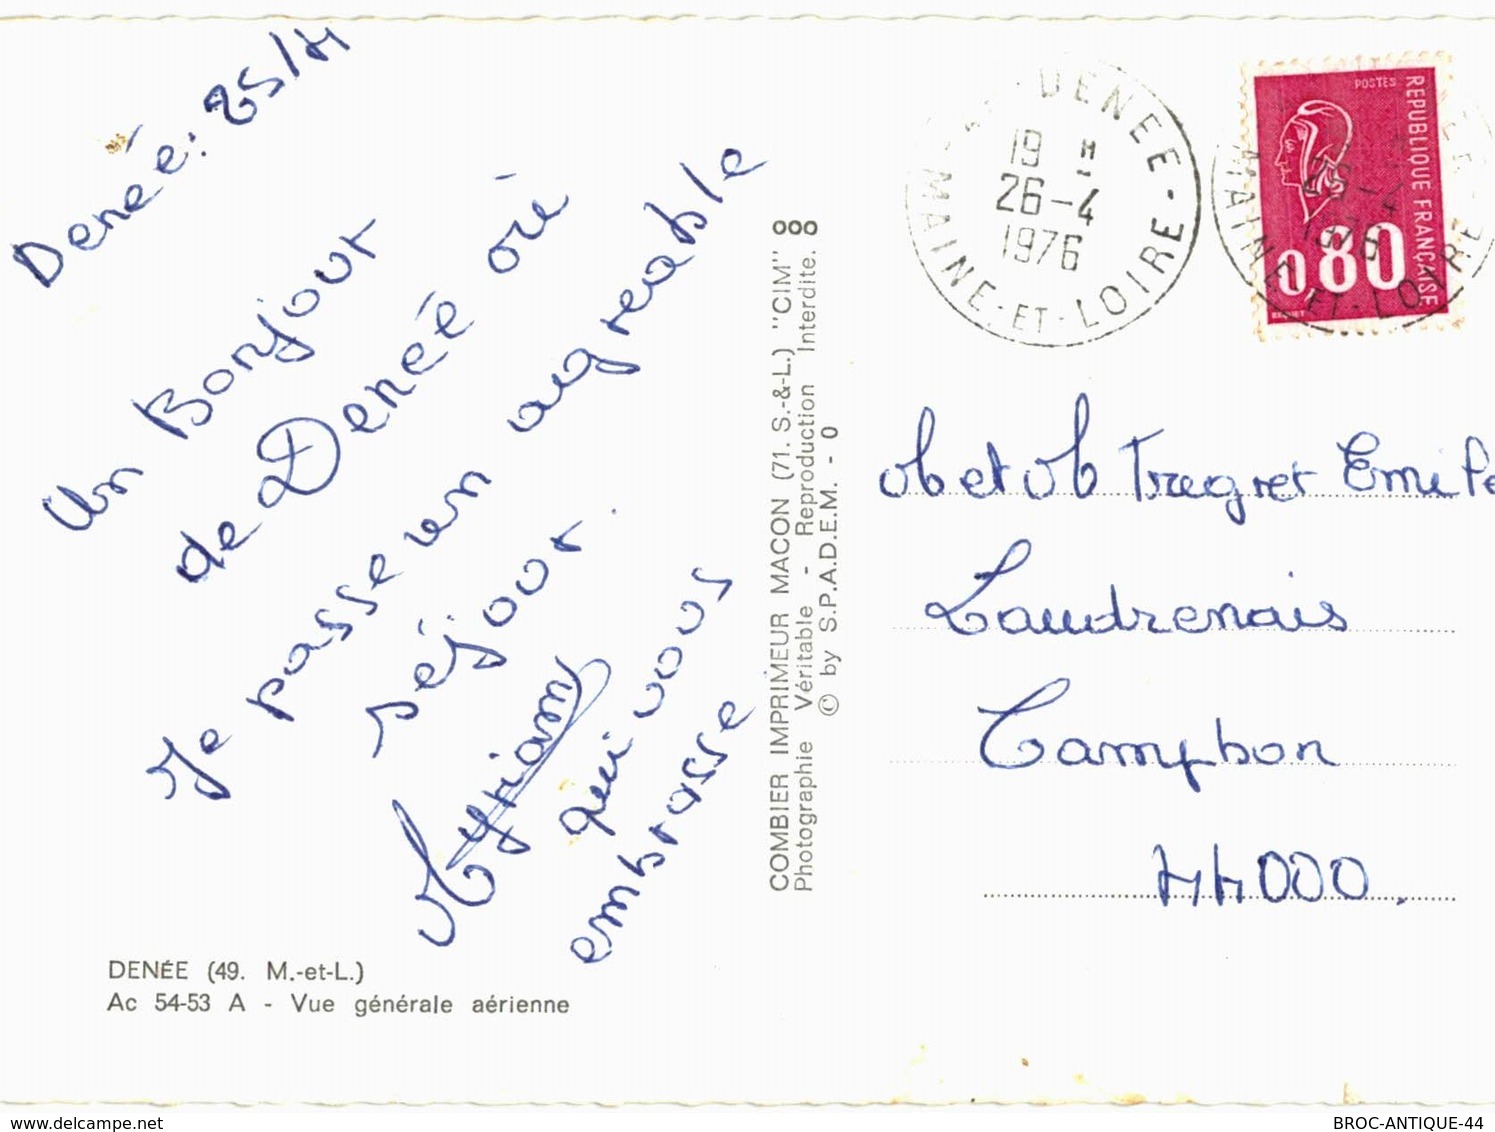 Denée: 25/4
Un Bonjour
de Denéé où
Je passe un agreable
séjour.
Myriam
qui vous
embrasse
DENÉE (49. M.-et-L.)
Ac 54-53 A - Vue générale aérienne
COMBIER IMPRIMEUR MACON (71. S.-&-L.) "CIM"
Photographie Véritable - Reproduction Interdite.
© by S.P.A.D.E.M. - 0
DENEE
19 H
26-4
1976
MAINE-ET-LOIRE
POSTES
REPUBLIQUE FRANÇAISE
0,80
BEQUET
26-4
1976
MAINE-ET-LOIRE
M et M Tregret Emile
Laudrenais
Campbon
44000.
www.delcampe.net
BROC-ANTIQUE-44